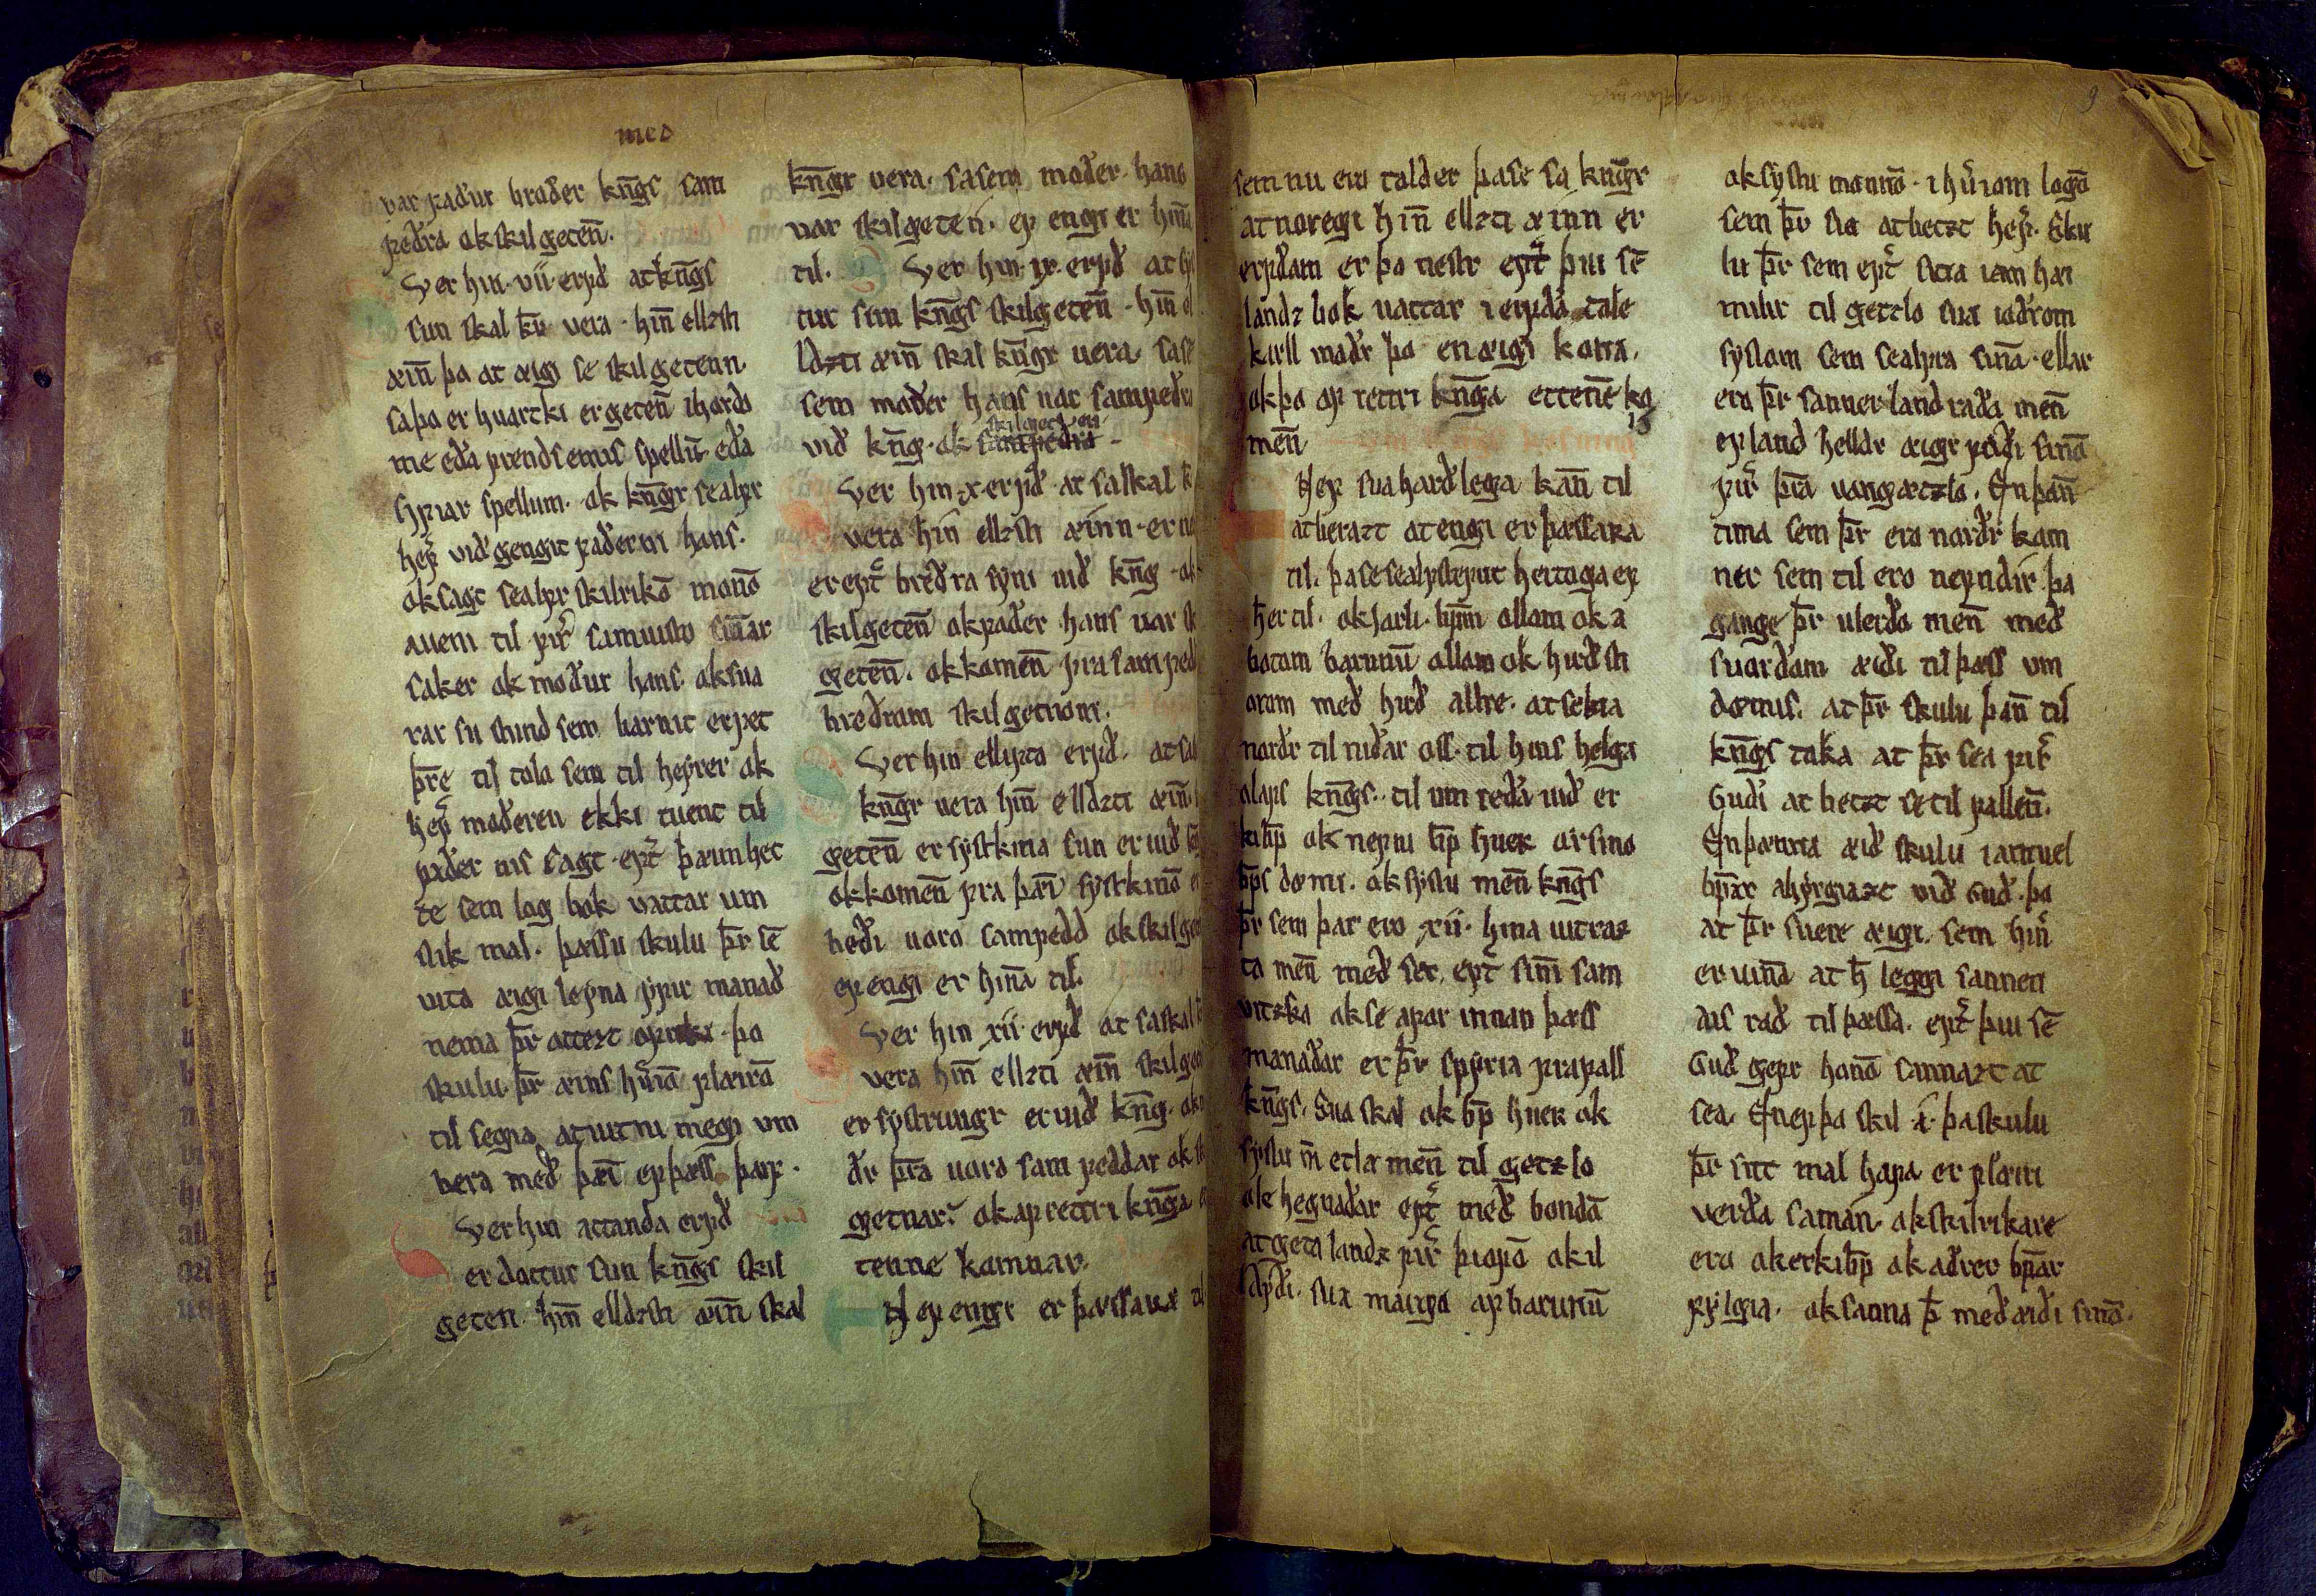 með
var faður broðer kn̄gs sam
feðra ok skil geten̄.
Ser hin · vii · erfð at kn̄gs
sun skal kn̄r vera · hin̄ ellzti
æin̄ þo at æigi se skil getenn
sa þo er huartki er geten̄ i hordo
me eða frendsemis spellū eða
sifiar spellum · ok kn̄gr sealfr
hef̉ við gengit faðerni hans ·
ok sagt sealfr skilrikō monō
auem til fir̉ samuisto sin̄ar
saker ok moður hans ok sua
rar su stund sem barnit er fœt
þr̄e til tala sem til heyrer ok
hef̉ moðeren ekki tuent til
faðer nis sagt · ept̉ þæim het
te sem log bok vattar um
slik mal · þæssu skulu þr̄ sē
vita æigi leyna yfir manað
nema þr̄ attezt ofriki · þo
skulu þr̄ æins hu̓iō flæirō
til segia at uitni megi um
bera með þæī ef þæss þarf ·
Ser hin attanda erfð
er dottur sun kn̄gs skil
geten · hin̄ elldzti æin̄ skal
kn̄gr vera · sa sem moðer · hans
uar skilgeten · ef engi er hin̄a
til · Ser hin · ix · erfð at sys
tur sun kn̄gs skilgeten̄ · hin̄ el
ldzti æin̄ skal kn̄gr uera · sa se
sem moðer hans uar samfeðra
skilgeten
við kn̄g · ok samfeðra
Ser hin · x · erfð at sa skal k
vera hin̄ ellzti æinn · er n
er ept̉ brœðra syni uið kn̄g · ok
skilgeten̄ ok faðer hans uar sk
geten̄ · ok komen̄ fra samfeð
brœðrum skilgetnom ·
Ser hin ellifta erfð · at sa
kn̄gr vera hin̄ elldzti æin̄
geten̄ er systkina sun er uið kn̄g
ok komen̄ fra þæī systkinō e
beði uoro samfedd ok skilget
ef engi er hin̄a til ·
Ser hin xii · erfð at sa skal k
vera hin̄ ellzti æin̄ skilget
er systrungr er uið kn̄g · ok m
ðr þr̄a uoro sam feddar ok sk
getnar · ok af rettri kn̄ga e
tenne komnar ·
N ef engi er þæssara til
sem nu ero talder þa se sa kn̄gr
at noregi hin̄ ellzti æinn er
erfðum er þa nestr ept̉ þui sē
landz bok uattar i erfða tale
karll maðr þo en æigi kona ·
ok þo af rettri kn̄ga ettenē ko
is
men̄
N ef sua harðlega kan̄ til
at berazt at engi er þæssara
til · þa se sealfskyfut hertoga ef
her til · ok iarli · by̅m ollom ok a
botom barunū ollom ok hirð sti
orum með hirð allre · at sekia
norðr til niðar oss · til hins helga
olafs kn̄gs · til um reða uið er
kibp̄ ok nefni bp̄ huer or sino
bps domi · ok syslu men̄ kn̄gs
þr̄ sem þar ero xii · hina uitraz
ta men̄ með ser · ept̉ sin̄i sam
vitzko ok se afar innan þæss
manaðar er þr̄ spyria frafall
kn̄gs · Sua skal ok bp̄ huer ok
syslu m̄ etla men̄ til getzlo
ok hegnaðar ept̉ með bondā
at geta landz fir̉ þiofō ok il
lsfði · sua marga af barunū
ok syslu mannō · i hu̓iom logō
sem þr̄ sia at bezt hef̉ · Sku
lu þr̄ sem ept̉ sitia iam har
milir til getzlo sua iaðrom
syslom sem sealfra sinā · ellar
ero þr̄ sanner land raða men̄
ef land helldr æigi friði sinō
fir̉ þr̄a uangætzlo · En þan̄
tima sem þr̄ ero norðr kom
ner sem til ero nefndir þa
gange þr̄ ulerðo men̄ með
suordum æiði til þæss um
dœmis · at þr̄ skulu þan̄ til
kn̄gs taka at þr̄ sea fir̉
Guði at bezt se til fallen̄ ·
En þænna æið skulu iamuel
bp̄ar abyrgiazt við Guð · þo
at þr̄ suere æigi · sem hin̄
er uin̄a at h̄ leggi sannen
dis rað til þæssa · ept̉ þui sē
Guð gefr honō sannazt at
sea · En ef þa skil a · þa skulu
þr̄ sitt mal hafa er flæiri
verða saman · ok skilrikare
ero ok erkibp̄ ok aðrer bp̄ar
fylgia · ok sanna þ̄ með æiði sinō ·
9